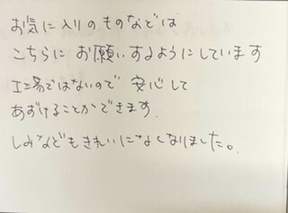 お気に入りのものなどは
こちらに お願いするようにしています
工場ではないので 安心して
あずけることができます.
しみなどもきれいになくなりました。